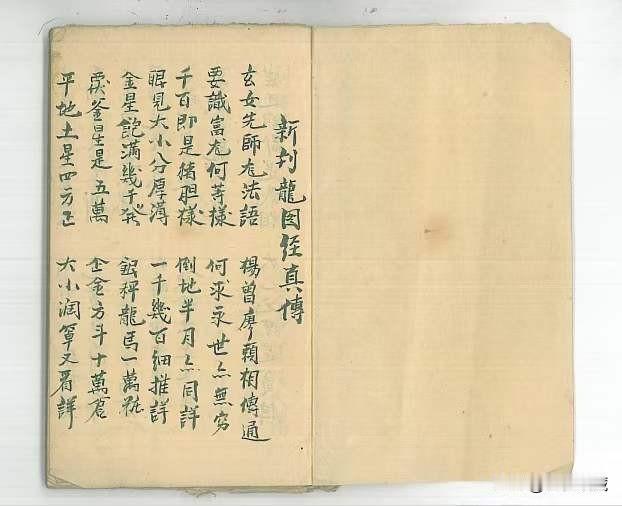 新刋龍图经真傳
玄女先師尨法語 楊曾廖賴相傳通
要識富尨何等樣 何求永世亦無穷
千百即是猪胆樣 倒地半月亦同詳
眼見大小分厚薄 一千幾百細推詳
金星飽滿幾千 銀秤龍馬一萬
釜星是五萬 金方斗十萬
平地土星四方正 大小濶又看詳